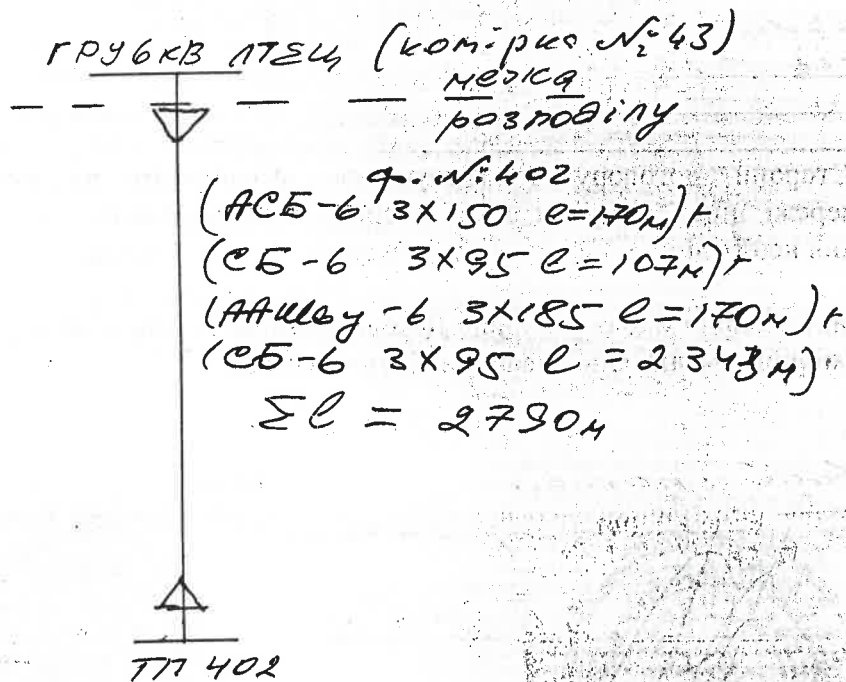 ГРУ 6кВ ЛТЕЦ (комірка № 43)
межа
розподілу
ф. № 402
(АСБ-6 3x150 l=170м)+
(СБ-6 3x95 l=107м)+
(ААШву-6 3x185 l=170м)+
(СБ-6 3x95 l=2343м)
Σl = 2790м
ТП 402